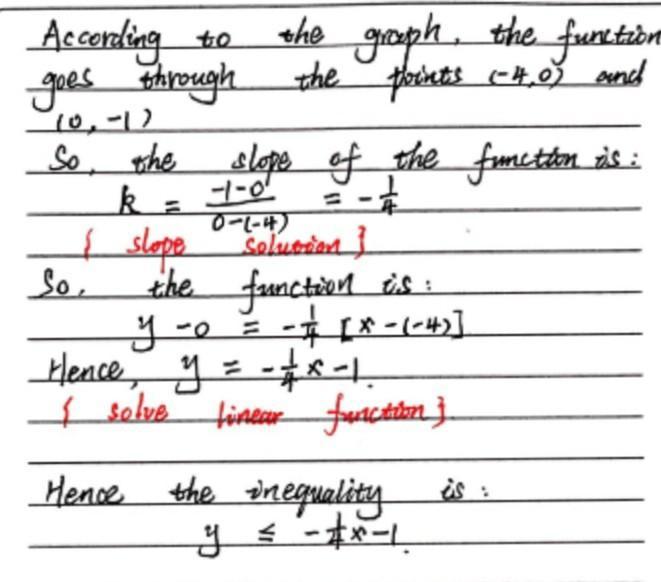 According to the graph, the function
goes through the points (-4,0) and
(0, -1)
So, the slope of the function is:
k = \frac{-1-0}{0-(-4)} = -\frac{1}{4}
{ slope solution }
So, the function is:
y - 0 = -\frac{1}{4} [x - (-4)]
Hence, y = -\frac{1}{4}x - 1.
{ solve linear function }
Hence the inequality is:
y ≤ -\frac{1}{4}x - 1.